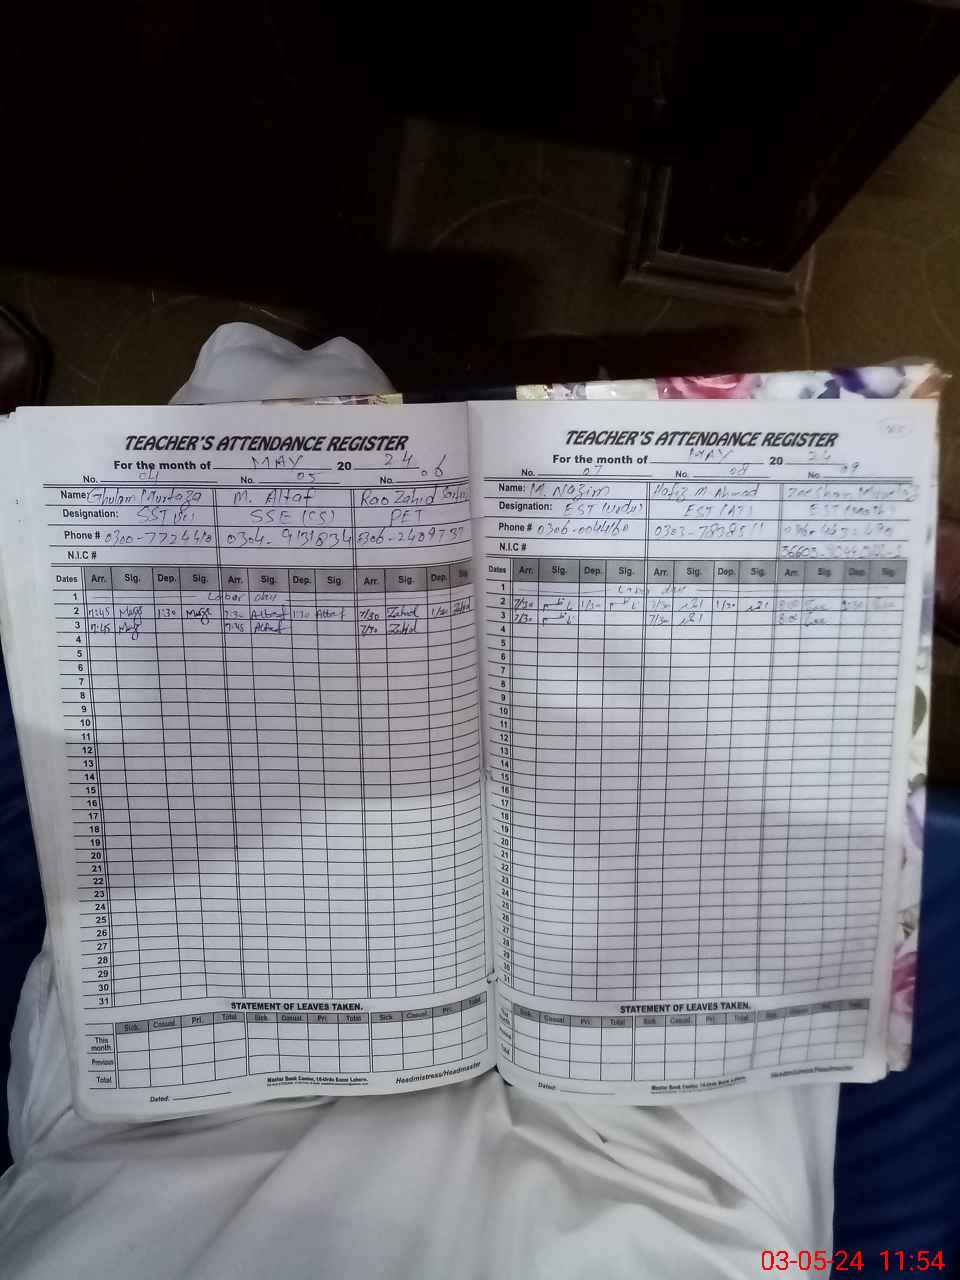 TEACHER'S ATTENDANCE REGISTER
For the month of MAY 20 24
No. 04 No. 05 No. 06
Name: Ghulam Murtaza M. Altaf Rao Zahid
Designation: SST SSE (CS) PET
Phone # 0300-7724410 0304-9131834 0306-2409737
N.I.C #
Dates Arr. Sig. Dep. Sig. Arr. Sig. Dep. Sig. Arr. Sig. Dep. Sig.
1 Labor day
2 7:45 1:30 7:30 Altaf 1:30 Altaf 7/30 Zahid 1/30 Zahid
3 7:45 7:45 Altaf 7/30 Zahid
4
5
6
7
8
9
10
11
12
13
14
15
16
17
18
19
20
21
22
23
24
25
26
27
28
29
30
31
STATEMENT OF LEAVES TAKEN.
Sick. Casual. Pri. Total Sick. Casual. Pri. Total Sick. Casual. Pri. Total
This month
Previous
Total
Master Book Center, 16-Urdu Bazar Lahore.
Headmistress/Headmaster
Dated:
TEACHER'S ATTENDANCE REGISTER
For the month of MAY 20 24
No. 07 No. 08 No. 09
Name: M. Nazim Hafiz M. Ahmad Zeeshan
Designation: EST (Urdu) EST (AT) EST (Math)
Phone # 0306-0044160 0303-7838511
N.I.C #
Dates Arr. Sig. Dep. Sig. Arr. Sig. Dep. Sig. Arr. Sig. Dep. Sig.
1 Labor day
2 7/30 ناظم 1/30 ناظم 7/30 1/30 8:00
3 7/30 ناظم 7/30 8:00
4
5
6
7
8
9
10
11
12
13
14
15
16
17
18
19
20
21
22
23
24
25
26
27
28
29
30
31
STATEMENT OF LEAVES TAKEN.
Sick. Casual. Pri. Total Sick. Casual. Pri. Total Sick. Casual. Pri. Total
This month
Previous
Total
Master Book Center, 16-Urdu Bazar Lahore.
Headmistress/Headmaster
Dated:
03-05-24 11:54